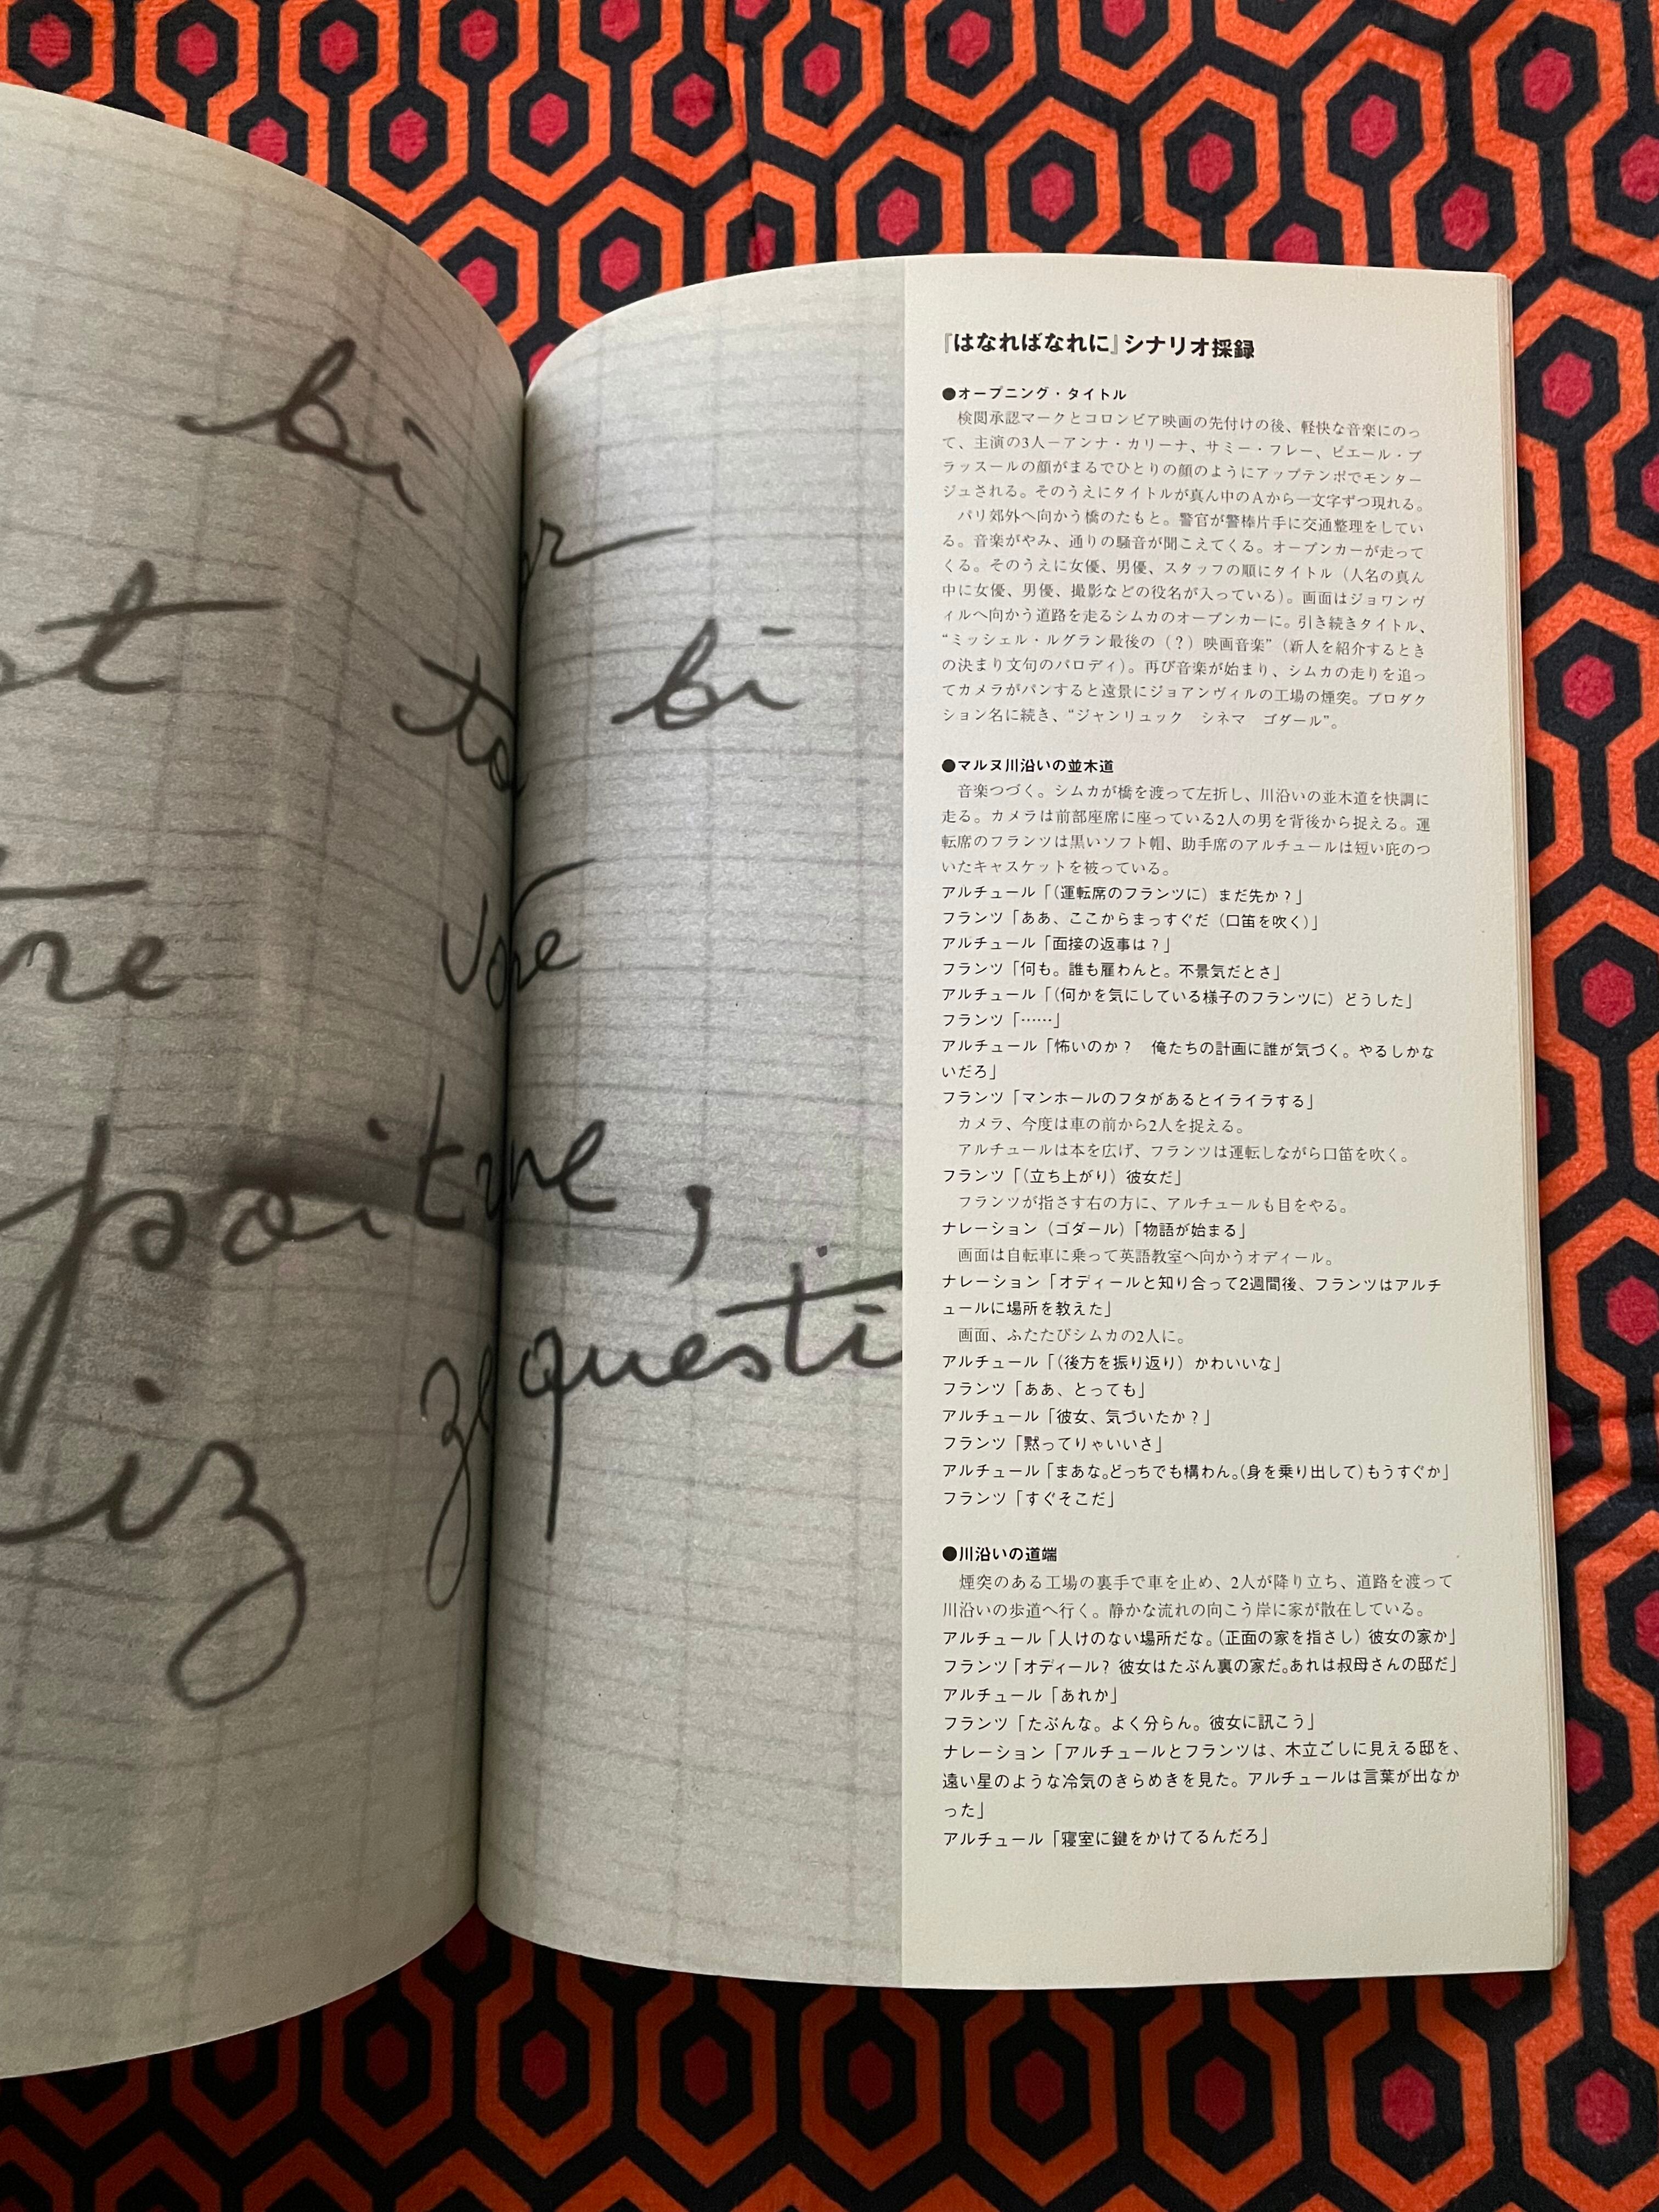 bi
or
st
to bi
tre
vore
poitrine,
ze questi
iz
『はなればなれに』シナリオ採録
●オープニング・タイトル
検閲承認マークとコロンビア映画の先付けの後、軽快な音楽にのっ
て、主演の3人－アンナ・カリーナ、サミー・フレー、ピエール・ブ
ラッスールの顔がまるでひとりの顔のようにアップテンポでモンター
ジュされる。そのうえにタイトルが真ん中のAから一文字ずつ現れる。
パリ郊外へ向かう橋のたもと。警官が警棒片手に交通整理をしてい
る。音楽がやみ、通りの騒音が聞こえてくる。オープンカーが走って
くる。そのうえに女優、男優、スタッフの順にタイトル（人名の真ん
中に女優、男優、撮影などの役名が入っている）。画面はジョワンヴ
ィルへ向かう道路を走るシムカのオープンカーに。引き続きタイトル、
“ミッシェル・ルグラン最後の（？）映画音楽”（新人を紹介するとき
の決まり文句のパロディ）。再び音楽が始まり、シムカの走りを追っ
てカメラがパンすると遠景にジョアンヴィルの工場の煙突。プロダク
ション名に続き、“ジャンリュック　シネマ　ゴダール”。
●マルヌ川沿いの並木道
音楽つづく。シムカが橋を渡って左折し、川沿いの並木道を快調に
走る。カメラは前部座席に座っている2人の男を背後から捉える。運
転席のフランツは黒いソフト帽、助手席のアルチュールは短い庇のつ
いたキャスケットを被っている。
アルチュール「（運転席のフランツに）まだ先か？」
フランツ「ああ、ここからまっすぐだ（口笛を吹く）」
アルチュール「面接の返事は？」
フランツ「何も。誰も雇わんと。不景気だとさ」
アルチュール「（何かを気にしている様子のフランツに）どうした」
フランツ「……」
アルチュール「怖いのか？　俺たちの計画に誰が気づく。やるしかな
いだろ」
フランツ「マンホールのフタがあるとイライラする」
カメラ、今度は車の前から2人を捉える。
アルチュールは本を広げ、フランツは運転しながら口笛を吹く。
フランツ「（立ち上がり）彼女だ」
フランツが指さす右の方に、アルチュールも目をやる。
ナレーション（ゴダール）「物語が始まる」
画面は自転車に乗って英語教室へ向かうオディール。
ナレーション「オディールと知り合って2週間後、フランツはアルチ
ュールに場所を教えた」
画面、ふたたびシムカの2人に。
アルチュール「（後方を振り返り）かわいいな」
フランツ「ああ、とっても」
アルチュール「彼女、気づいたか？」
フランツ「黙ってりゃいいさ」
アルチュール「まあな。どっちでも構わん。（身を乗り出して）もうすぐか」
フランツ「すぐそこだ」
●川沿いの道端
煙突のある工場の裏手で車を止め、2人が降り立ち、道路を渡って
川沿いの歩道へ行く。静かな流れの向こう岸に家が散在している。
アルチュール「人けのない場所だな。（正面の家を指さし）彼女の家か」
フランツ「オディール？ 彼女はたぶん裏の家だ。あれは叔母さんの邸だ」
アルチュール「あれか」
フランツ「たぶんな。よく分らん。彼女に訊こう」
ナレーション「アルチュールとフランツは、木立ごしに見える邸を、
遠い星のような冷気のきらめきを見た。アルチュールは言葉が出なか
った」
アルチュール「寝室に鍵をかけてるんだろ」